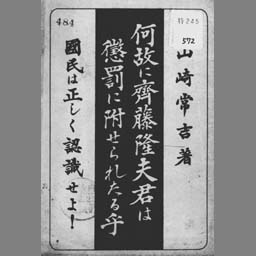 484
特245
572
山崎常吉著
何故に齊藤隆夫君は
懲罰に附せられたる乎
國民は正しく認識せよ！